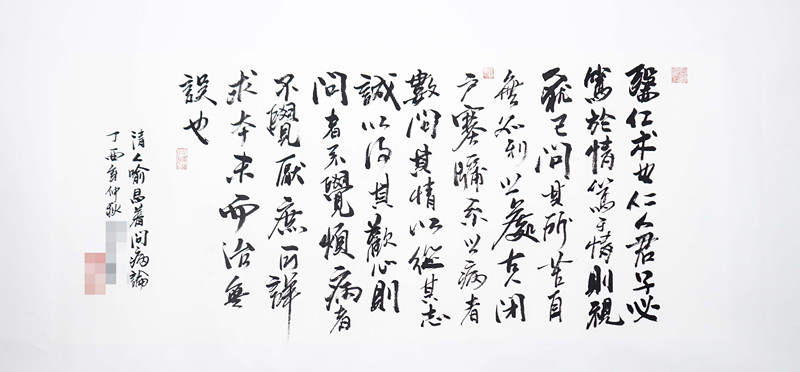 醫仁术也仁人君子必
篤於情篤于情則視
猶己問其所苦自
無不到之處古閉
户塞牖系之病者
數問其情以從其志
誠以得其歡心則
問者不覺煩病者
不覺厭庶可詳
求本末而治無
誤也
清人喻昌著問病論
丁酉年仲秋